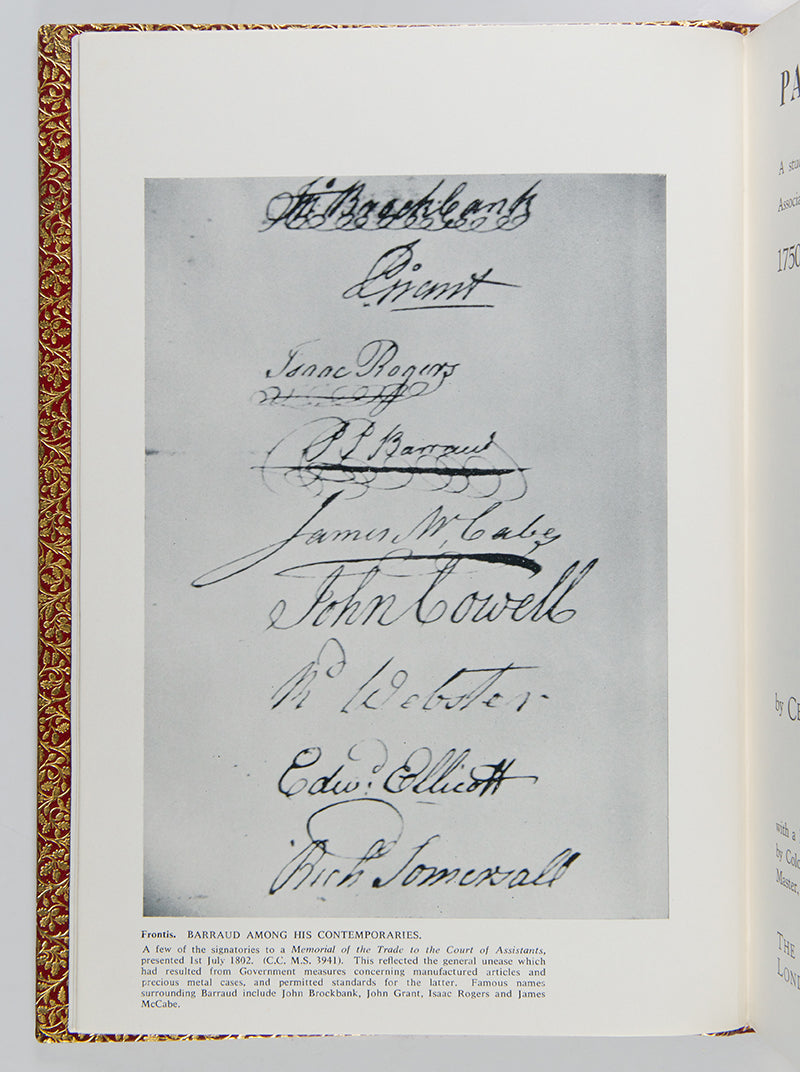 Jn.º Brockbank
J Grant
Isaac Rogers
P P Barraud
James Mc,Cabe
John Cowell
Rd Webster
Edwd. Ellicott
Richd Somersall
Frontis. BARRAUD AMONG HIS CONTEMPORARIES.
A few of the signatories to a Memorial of the Trade to the Court of Assistants,
presented 1st July 1802. (C.C. M.S. 3941). This reflected the general unease which
had resulted from Government measures concerning manufactured articles and
precious metal cases, and permitted standards for the latter. Famous names
surrounding Barraud include John Brockbank, John Grant, Isaac Rogers and James
McCabe.
PA
A stu
Associa
1750
by C
with a
by Colo
Master,
THE
LOND